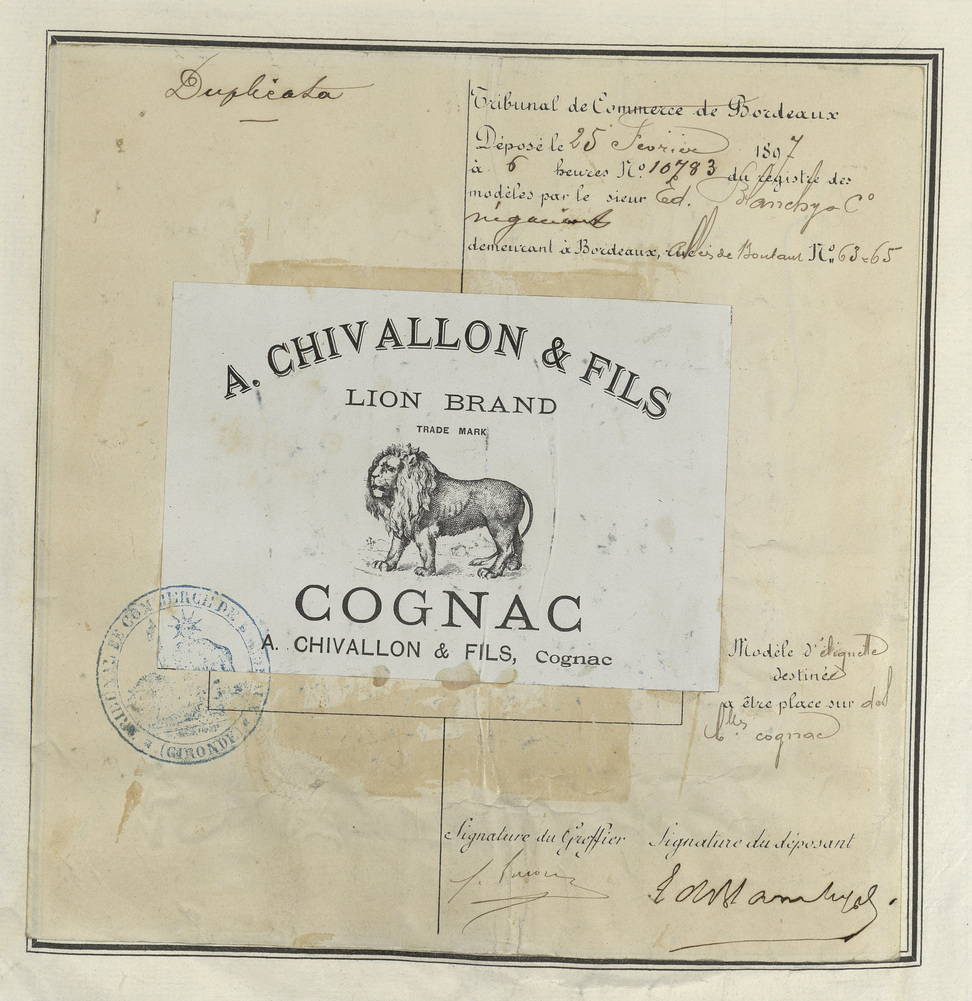 Duplicata
Tribunal de Commerce de Bordeaux
Déposé le 25 Février 1897
à 6 heures No. 10783 du registre des
modèles par le sieur Ed. Blanchy & Co
négociant
demeurant à Bordeaux, de Boutaut No. 63-65
A. CHIVALLON & FILS
LION BRAND
TRADE MARK
COGNAC
A. CHIVALLON & FILS, Cognac
TRIBUNAL DE COMMERCE DE
(GIRONDE)
Modèle d'étiquette
destinée
a être place sur des
blles cognac
Signature du Greffier Signature du déposant